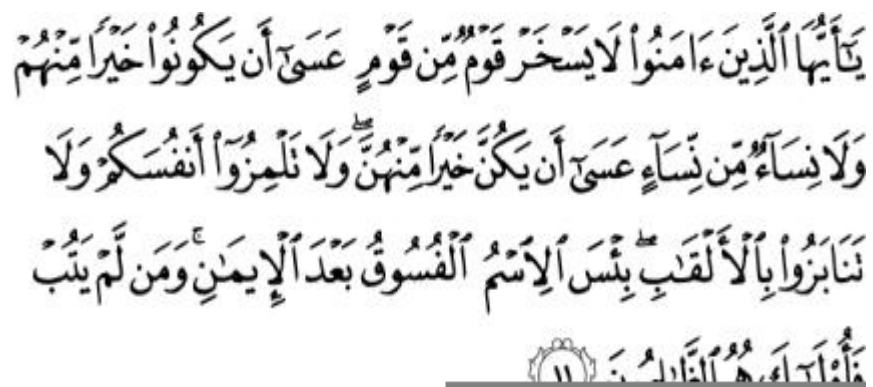 يَـٰٓأَيُّهَا ٱلَّذِينَ ءَامَنُوا۟ لَا يَسْخَرْ قَوْمٌ مِّن قَوْمٍ عَسَىٰٓ أَن يَكُونُوا۟ خَيْرًا مِّنْهُمْ
وَلَا نِسَآءٌ مِّن نِّسَآءٍ عَسَىٰٓ أَن يَكُنَّ خَيْرًا مِّنْهُنَّ ۖ وَلَا تَلْمِزُوٓا۟ أَنفُسَكُمْ وَلَا
تَنَابَزُوا۟ بِٱلْأَلْقَـٰبِ ۖ بِئْسَ ٱلِٱسْمُ ٱلْفُسُوقُ بَعْدَ ٱلْإِيمَـٰنِ ۚ وَمَن لَّمْ يَتُبْ
فَأُو۟لَـٰٓئِكَ هُمُ ٱلظَّـٰلِمُونَ ١١